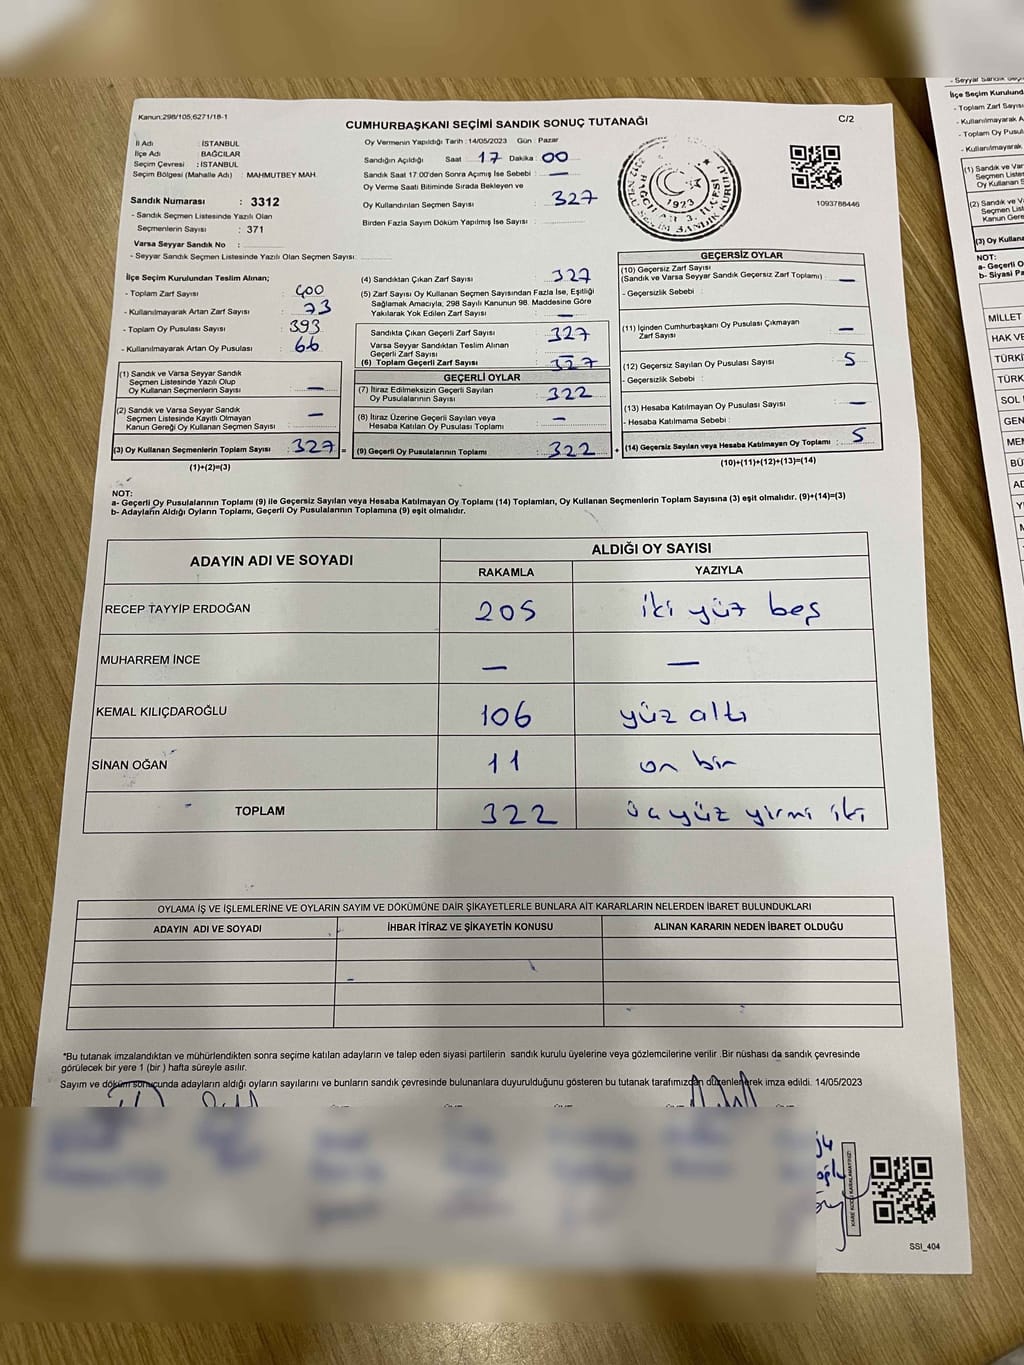 Kanun:298/105,6271/18-1
CUMHURBAŞKANI SEÇİMİ SANDIK SONUÇ TUTANAĞI
C/2
İl Adı : İSTANBUL
İlçe Adı BAĞCILAR
Seçim Çevresi : İSTANBUL
Seçim Bölgesi (Mahalle Adı) : MAHMUTBEY MAH.
Sandık Numarası : 3312
- Sandık Seçmen Listesinde Yazılı Olan
Seçmenlerin Sayısı : 371
Varsa Seyyar Sandık No :
- Seyyar Sandık Seçmen Listesinde Yazılı Olan Seçmen Sayısı:
Oy Vermenin Yapıldığı Tarih :14/05/2023 Gün : Pazar
Sandığın Açıldığı Saat 17 Dakika : 00
Sandık Saat 17:00'den Sonra Açımış İse Sebebi : —
Oy Verme Saati Bitiminde Sırada Bekleyen ve
Oy Kullandırılan Seçmen Sayısı : 327
Birden Fazla Sayım Döküm Yapılmış İse Sayısı :
1923
1093786446
İlçe Seçim Kurulundan Teslim Alınan;
- Toplam Zarf Sayısı : 400
- Kullanılmayarak Artan Zarf Sayısı : 73
- Toplam Oy Pusulası Sayısı : 393
- Kullanılmayarak Artan Oy Pusulası : 66
(1) Sandık ve Varsa Seyyar Sandık
Seçmen Listesinde Yazılı Olup
Oy Kullanan Seçmenlerin Sayısı : —
(2) Sandık ve Varsa Seyyar Sandık
Seçmen Listesinde Kayıtlı Olmayan
Kanun Gereği Oy Kullanan Seçmen Sayısı : —
(3) Oy Kullanan Seçmenlerin Toplam Sayısı : 327 =
(1)+(2)=(3)
(4) Sandıktan Çıkan Zarf Sayısı : 327
(5) Zarf Sayısı Oy Kullanan Seçmen Sayısından Fazla İse, Eşitliği
Sağlamak Amacıyla, 298 Sayılı Kanunun 98. Maddesine Göre
Yakılarak Yok Edilen Zarf Sayısı : —
Sandıkta Çıkan Geçerli Zarf Sayısı : 327
Varsa Seyyar Sandıktan Teslim Alınan
Geçerli Zarf Sayısı : —
(6) Toplam Geçerli Zarf Sayısı : 327
GEÇERLİ OYLAR
(7) İtiraz Edilmeksizin Geçerli Sayılan
Oy Pusulalarının Sayısı : 322
(8) İtiraz Üzerine Geçerli Sayılan veya
Hesaba Katılan Oy Pusulası Toplamı : —
(9) Geçerli Oy Pusulalarının Toplamı : 322 +
GEÇERSİZ OYLAR
(10) Geçersiz Zarf Sayısı
(Sandık ve Varsa Seyyar Sandık Geçersiz Zarf Toplamı) : —
- Geçersizlik Sebebi :
(11) İçinden Cumhurbaşkanı Oy Pusulası Çıkmayan
Zarf Sayısı : —
(12) Geçersiz Sayılan Oy Pusulası Sayısı : 5
- Geçersizlik Sebebi :
(13) Hesaba Katılmayan Oy Pusulası Sayısı : —
- Hesaba Katılmama Sebebi :
(14) Geçersiz Sayılan veya Hesaba Katılmayan Oy Toplamı : 5
(10)+(11)+(12)+(13)=(14)
NOT:
a- Geçerli Oy Pusulalarının Toplamı (9) ile Geçersiz Sayılan veya Hesaba Katılmayan Oy Toplamı (14) Toplamları, Oy Kullanan Seçmenlerin Toplam Sayısına (3) eşit olmalıdır. (9)+(14)=(3)
b- Adayların Aldığı Oyların Toplamı, Geçerli Oy Pusulalarının Toplamına (9) eşit olmalıdır.
ADAYIN ADI VE SOYADI ALDIĞI OY SAYISI
RAKAMLA YAZIYLA
RECEP TAYYİP ERDOĞAN 205 iki yüz beş
MUHARREM İNCE — —
KEMAL KILIÇDAROĞLU 106 yüz altı
SİNAN OĞAN 11 on bir
TOPLAM 322 üç yüz yirmi iki
OYLAMA İŞ VE İŞLEMLERİNE VE OYLARIN SAYIM VE DÖKÜMÜNE DAİR ŞİKAYETLERLE BUNLARA AİT KARARLARIN NELERDEN İBARET BULUNDUKLARI
ADAYIN ADI VE SOYADI İHBAR İTİRAZ VE ŞİKAYETİN KONUSU ALINAN KARARIN NEDEN İBARET OLDUĞU
*Bu tutanak imzalandıktan ve mühürlendikten sonra seçime katılan adayların ve talep eden siyasi partilerin sandık kurulu üyelerine veya gözlemcilerine verilir .Bir nüshası da sandık çevresinde
görülecek bir yere 1 (bir ) hafta süreyle asılır.
Sayım ve döküm sonucunda adayların aldığı oyların sayılarını ve bunların sandık çevresinde bulunanlara duyurulduğunu gösteren bu tutanak tarafımızdan düzenlenerek imza edildi. 14/05/2023
KARE KODU KARALAMAYINIZ!
SSI_404
- Seyyar Sandık Seçm
İlçe Seçim Kurulund
- Toplam Zarf Sayısı
- Kullanılmayarak A
- Toplam Oy Pusula
- Kullanılmayarak
(1) Sandık ve Va
Seçmen Liste
Oy Kullanan S
(2) Sandık ve V
Seçmen Liste
Kanun Gere
(3) Oy Kullana
NOT:
a- Geçerli O
b- Siyasi Pa
MİLLET
HAK VE
TÜRKİ
TÜRK
SOL
GEN
MEM
BÜ
AD
Y